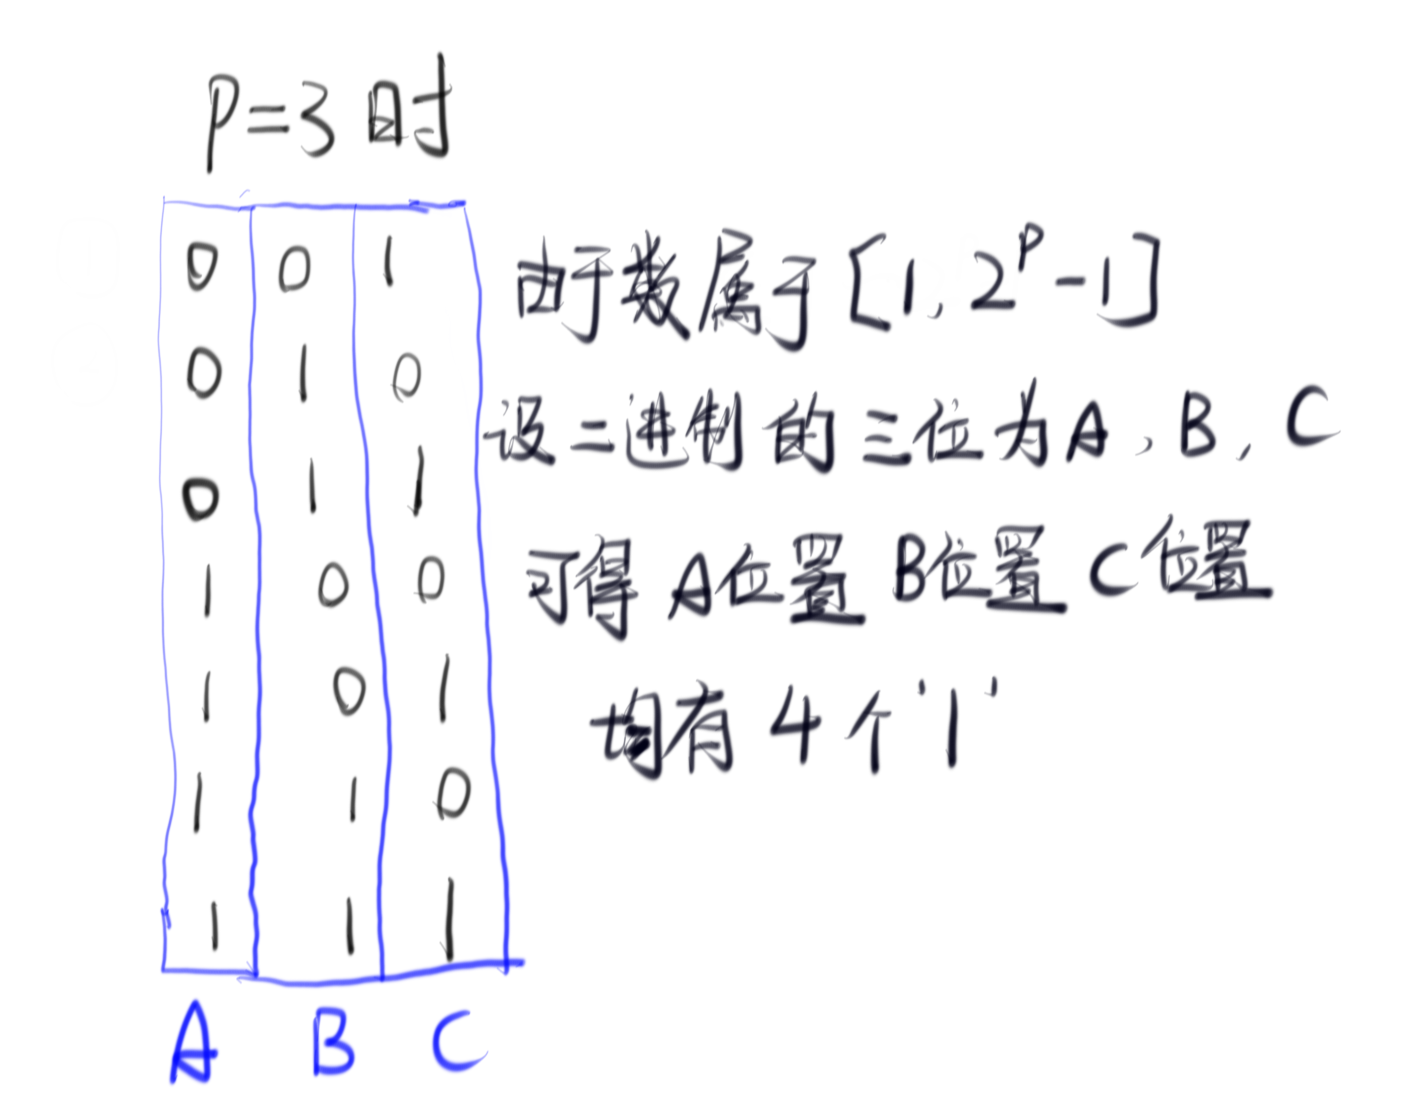 P=3时
0 0 1
0 1 0
0 1 1
1 0 0
1 0 1
1 1 0
1 1 1
A B C
由于数属于[1, 2^p-1]
设二进制的三位为A、B、C
可得 A位置 B位置 C位置
均有 4个'1'